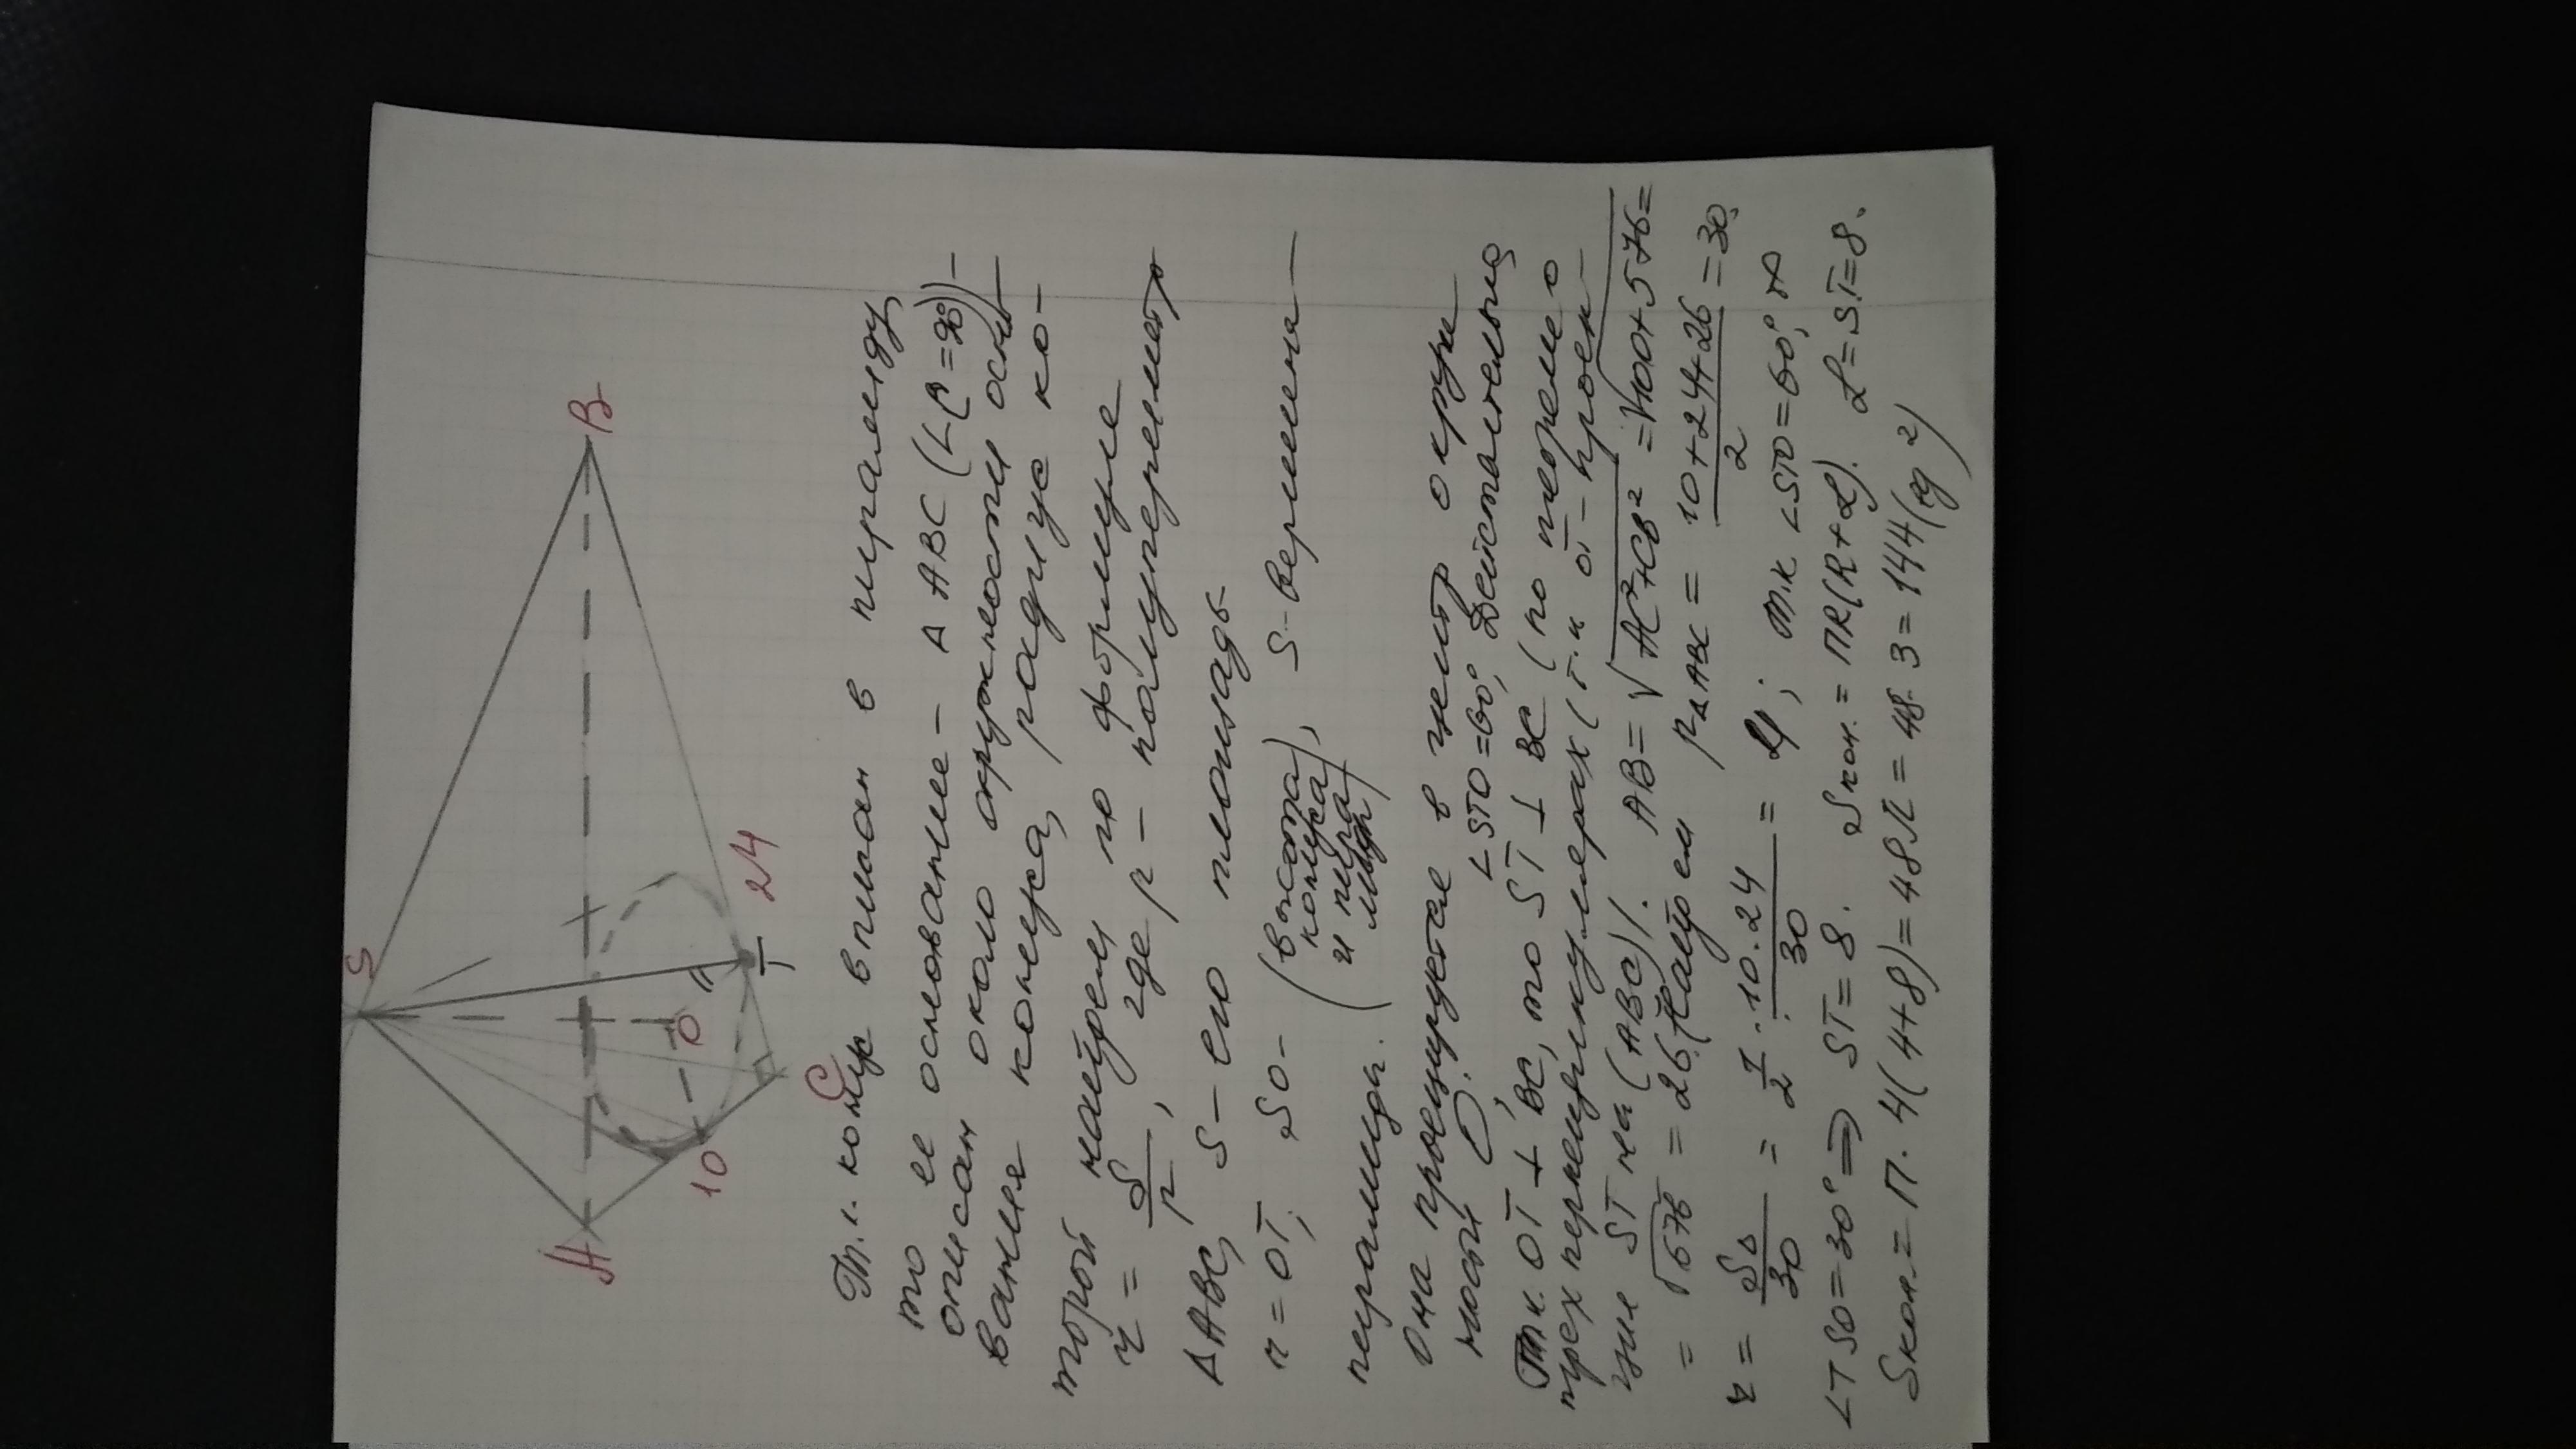 S
A
B
C
O
T
10
24
Т.к. конус вписан в пирамиду,
то ее основание – Δ ABC (∠C = 90°) –
описан около окружности осно-
вания конуса, радиус ко-
торой найдем по формуле
r = S/p, где p – полупериметр
Δ ABC, S – его площадь
r = OT; SO – (высота конуса и пирамиды), S – вершина
пирамиды.
Она проецируется в центр окруж
ности O. ∠STO = 60°, Действительно
Т.к. OT ⊥ BC, то ST ⊥ BC (по теореме о
трех перпендикулярах (т.к OT – проек-
ция ST на (ABC)). AB = √AC²+CB² = √100+576 =
= √676 = 26. Найдем p Δ ABC = (10+24+26)/2 = 30.
r = SΔ/30 = 1/2 · (10·24)/30 = 4; т.к ∠STO = 60°, то
∠TSO = 30° ⇒ ST = 8. Sкон. = ПR(R+L). L = ST = 8.
Sкон. = П·4(4+8) = 48П = 48·3 = 144 (ед²)